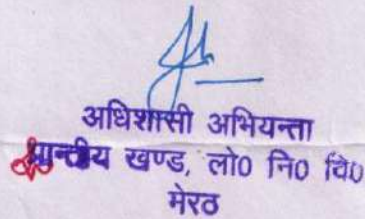 अधिशासी अभियन्ता
प्रान्तीय खण्ड, लो0 नि0 वि0
मेरठ